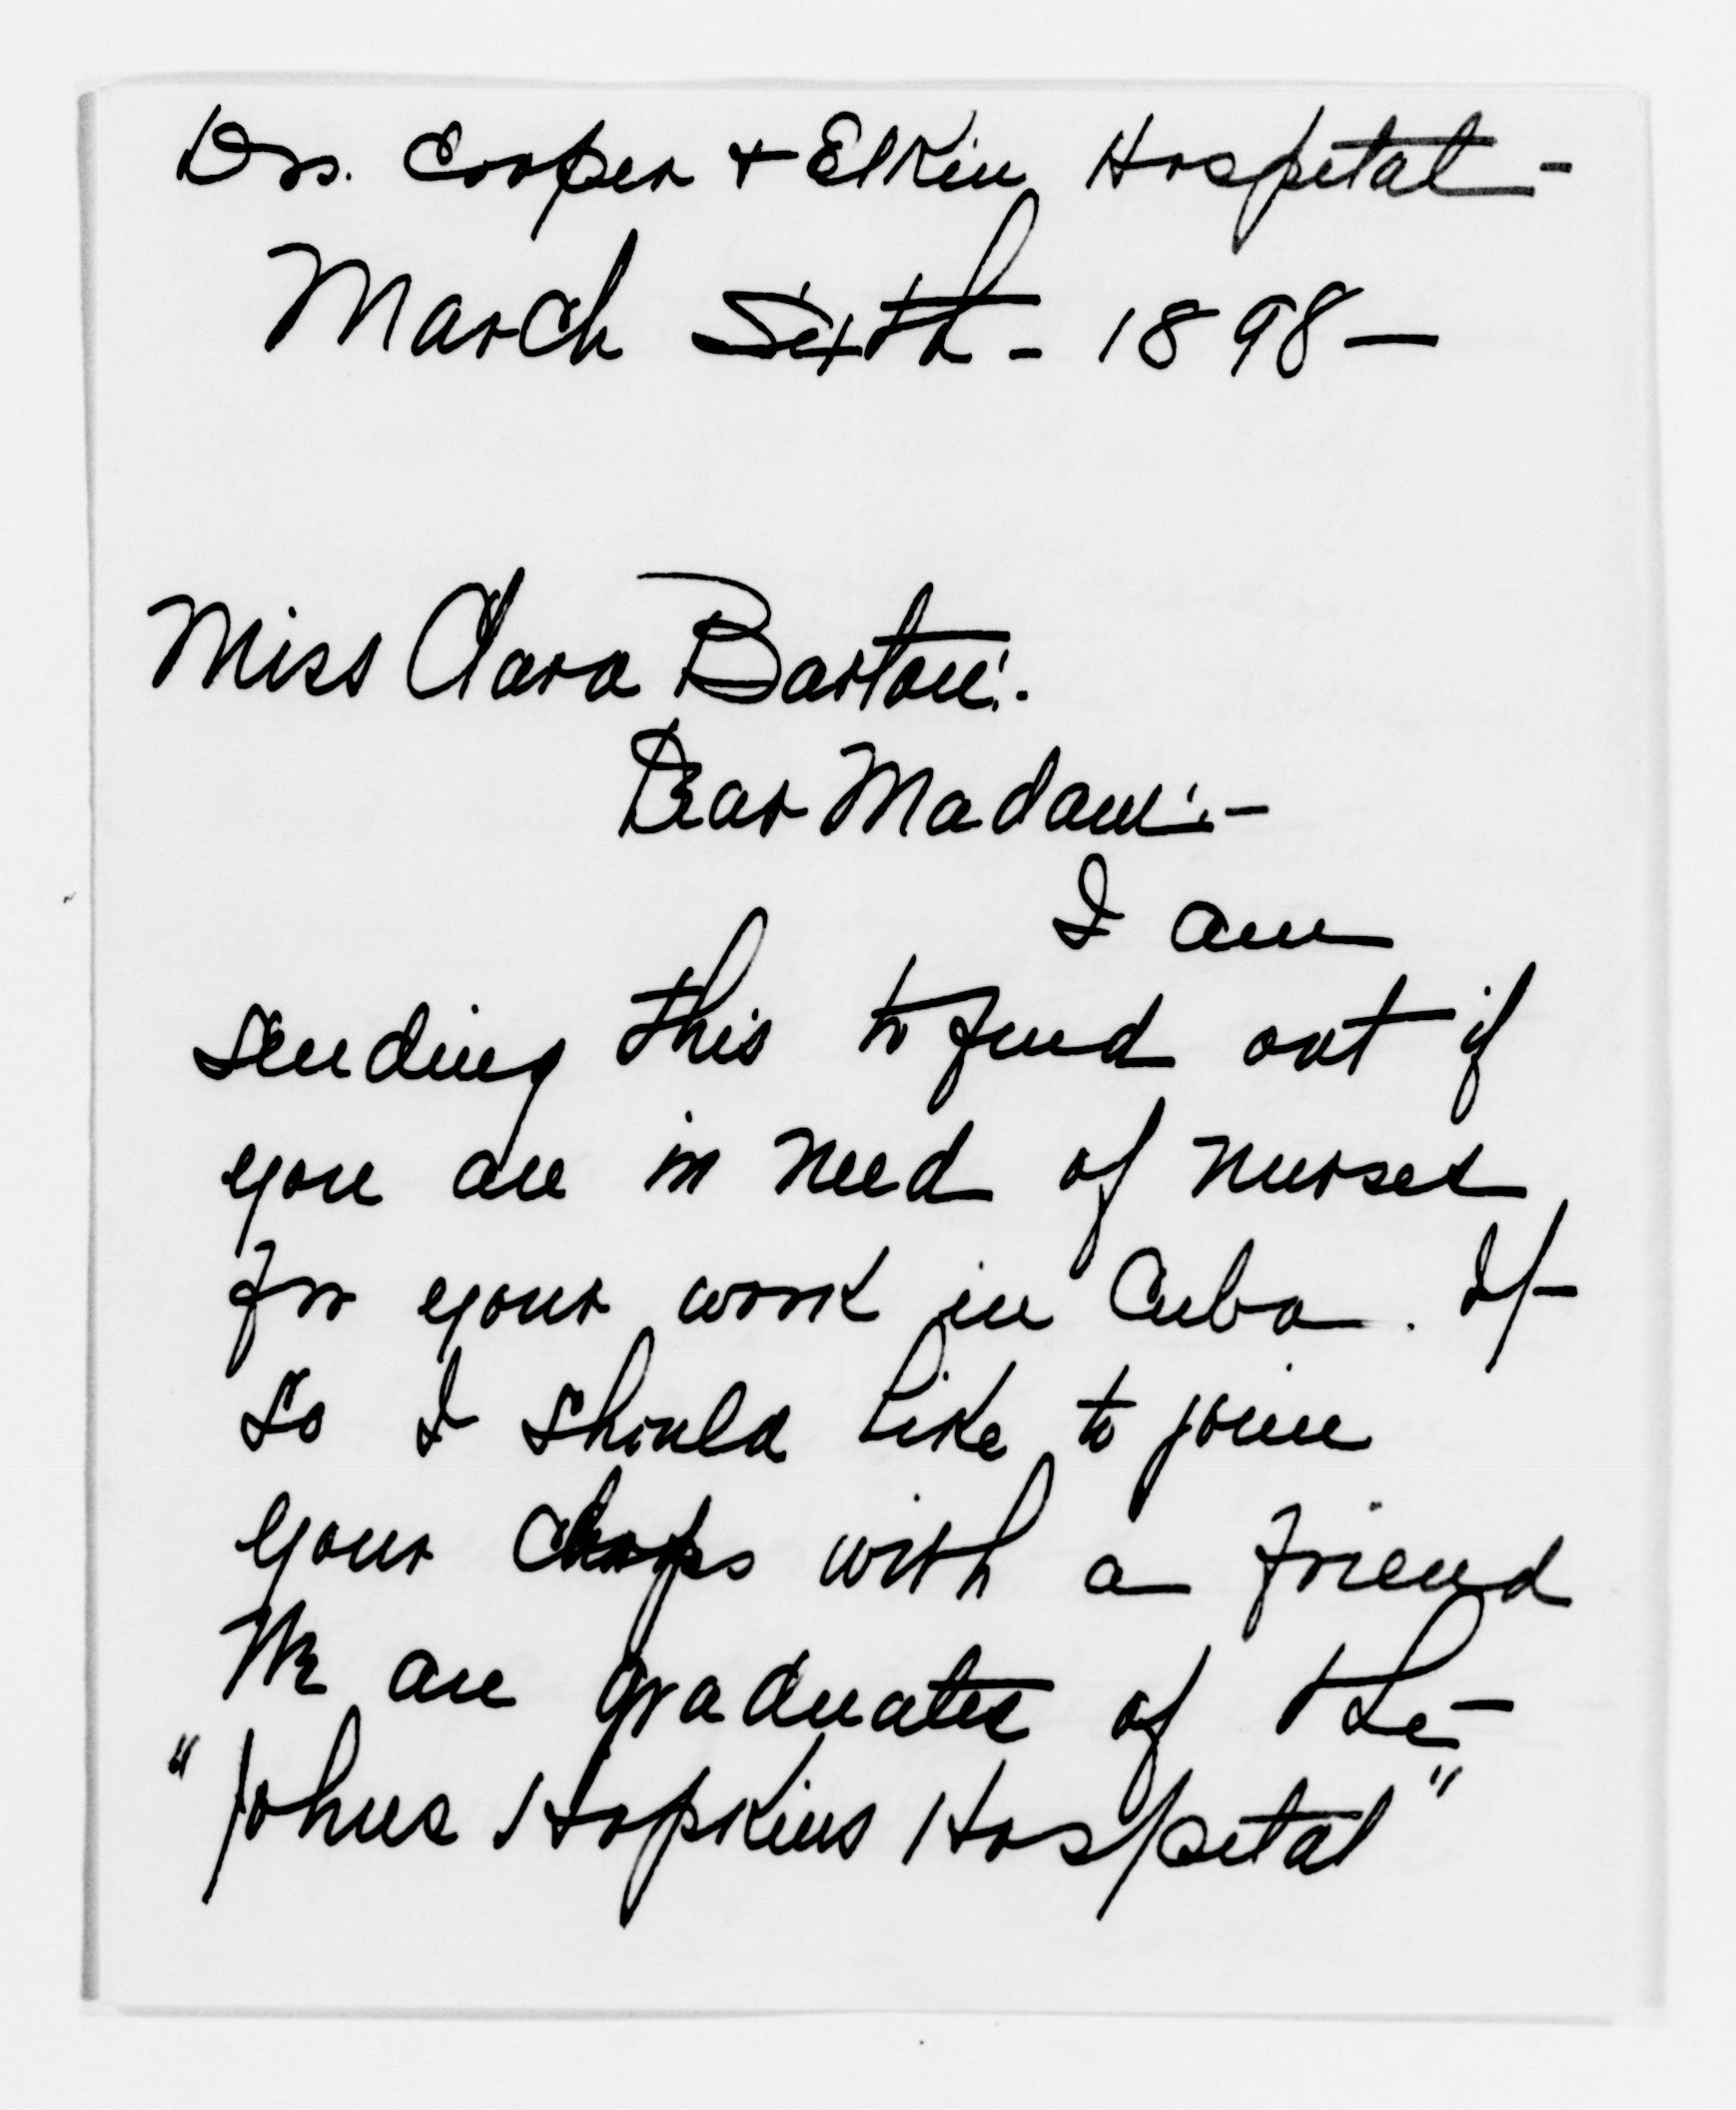 Drs. Cooper + Elkin Hospital -
March Sixth - 1898 —
Miss Clara Barton:.
Dear Madam:. -
I am
sending this to find out if
you are in need of nurses
for your work in Cuba. If -
so I should like to join
your corps with a friend
We are graduates of the -
"Johns Hopkins Hospital"